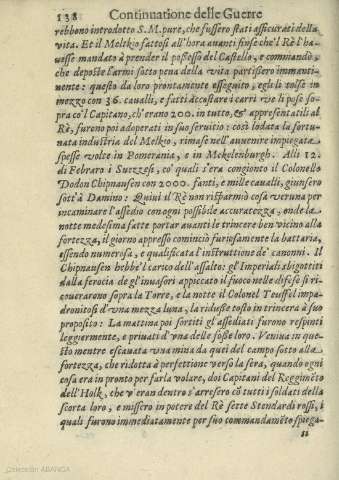 138 Continuatione delle Guerre
rebbono introdotto S.M. pure, che fussero stati assicurati della
vita. Et il Melekio fattosi all'hora avanti finse che'l Rè l'ha-
vesse mandato à prender il possesso del Castello, e commandò,
che deposte l'armi sotto pena della vita partissero immanti-
nente: questo da loro prontamente esseguito, egli li tolse in
mezzo con 36. cavalli, e fatti accostare i carri vè li pose so-
pra co'l Capitano, ch'erano 200. in tutto, & appresentatili al
Rè, furono poi adoperati in suo servitio: così lodata la fortu-
nata industria del Melkio, rimase nell'avvenire impiegata
spesse volte in Pomerania, e in Mekolenburgh. Alli 12.
di Febraro i Suezzesi, co' quali s'era congionto il Colonello
Dodon Chipnausen con 2000. fanti, e mille cavalli, giunsero
sott'à Damino: Quivi il Rè non risparmiò cosa veruna per
incaminare l'assedio con ogni possibile accuratezza, onde la
notte medesima fatte portar avanti le trincere ben vicino alla
fortezza, il giorno appresso cominciò furiosamente la battaria,
essendo numerosa, e qualificata l'instruttione de' canonni. Il
Chipnausen hebbe'l carico dell'assalto: gl'Imperiali sbigottiti
dalla ferocia de gl'invasori appiccato il fuoco nelle difese si ri-
courarono sopra la Torre, e la notte il Colonel Teuffel impa-
dronitosi d'una mezza luna, la ridusse tosto in trincera à suo
proposito: La mattina poi sortiti gl'assediati furono respinti
leggiermente, e privati d'una delle fosse loro. Veniva in que-
sto mentre escavata una mina da quei del campo sotto alla
fortezza, che ridotta à perfettione verso la sera, quando ogni
cosa era in pronto per farla volare, doi Capitani del Reggimēto
dell'Holk, che v'eran dentro s'arresero cō tutti i soldati della
scorta loro, e missero in potere del Rè sette Stendardi rossi, i
quali furono immediatamente per suo commandamēto spiega-
ti
Colección ABANCA